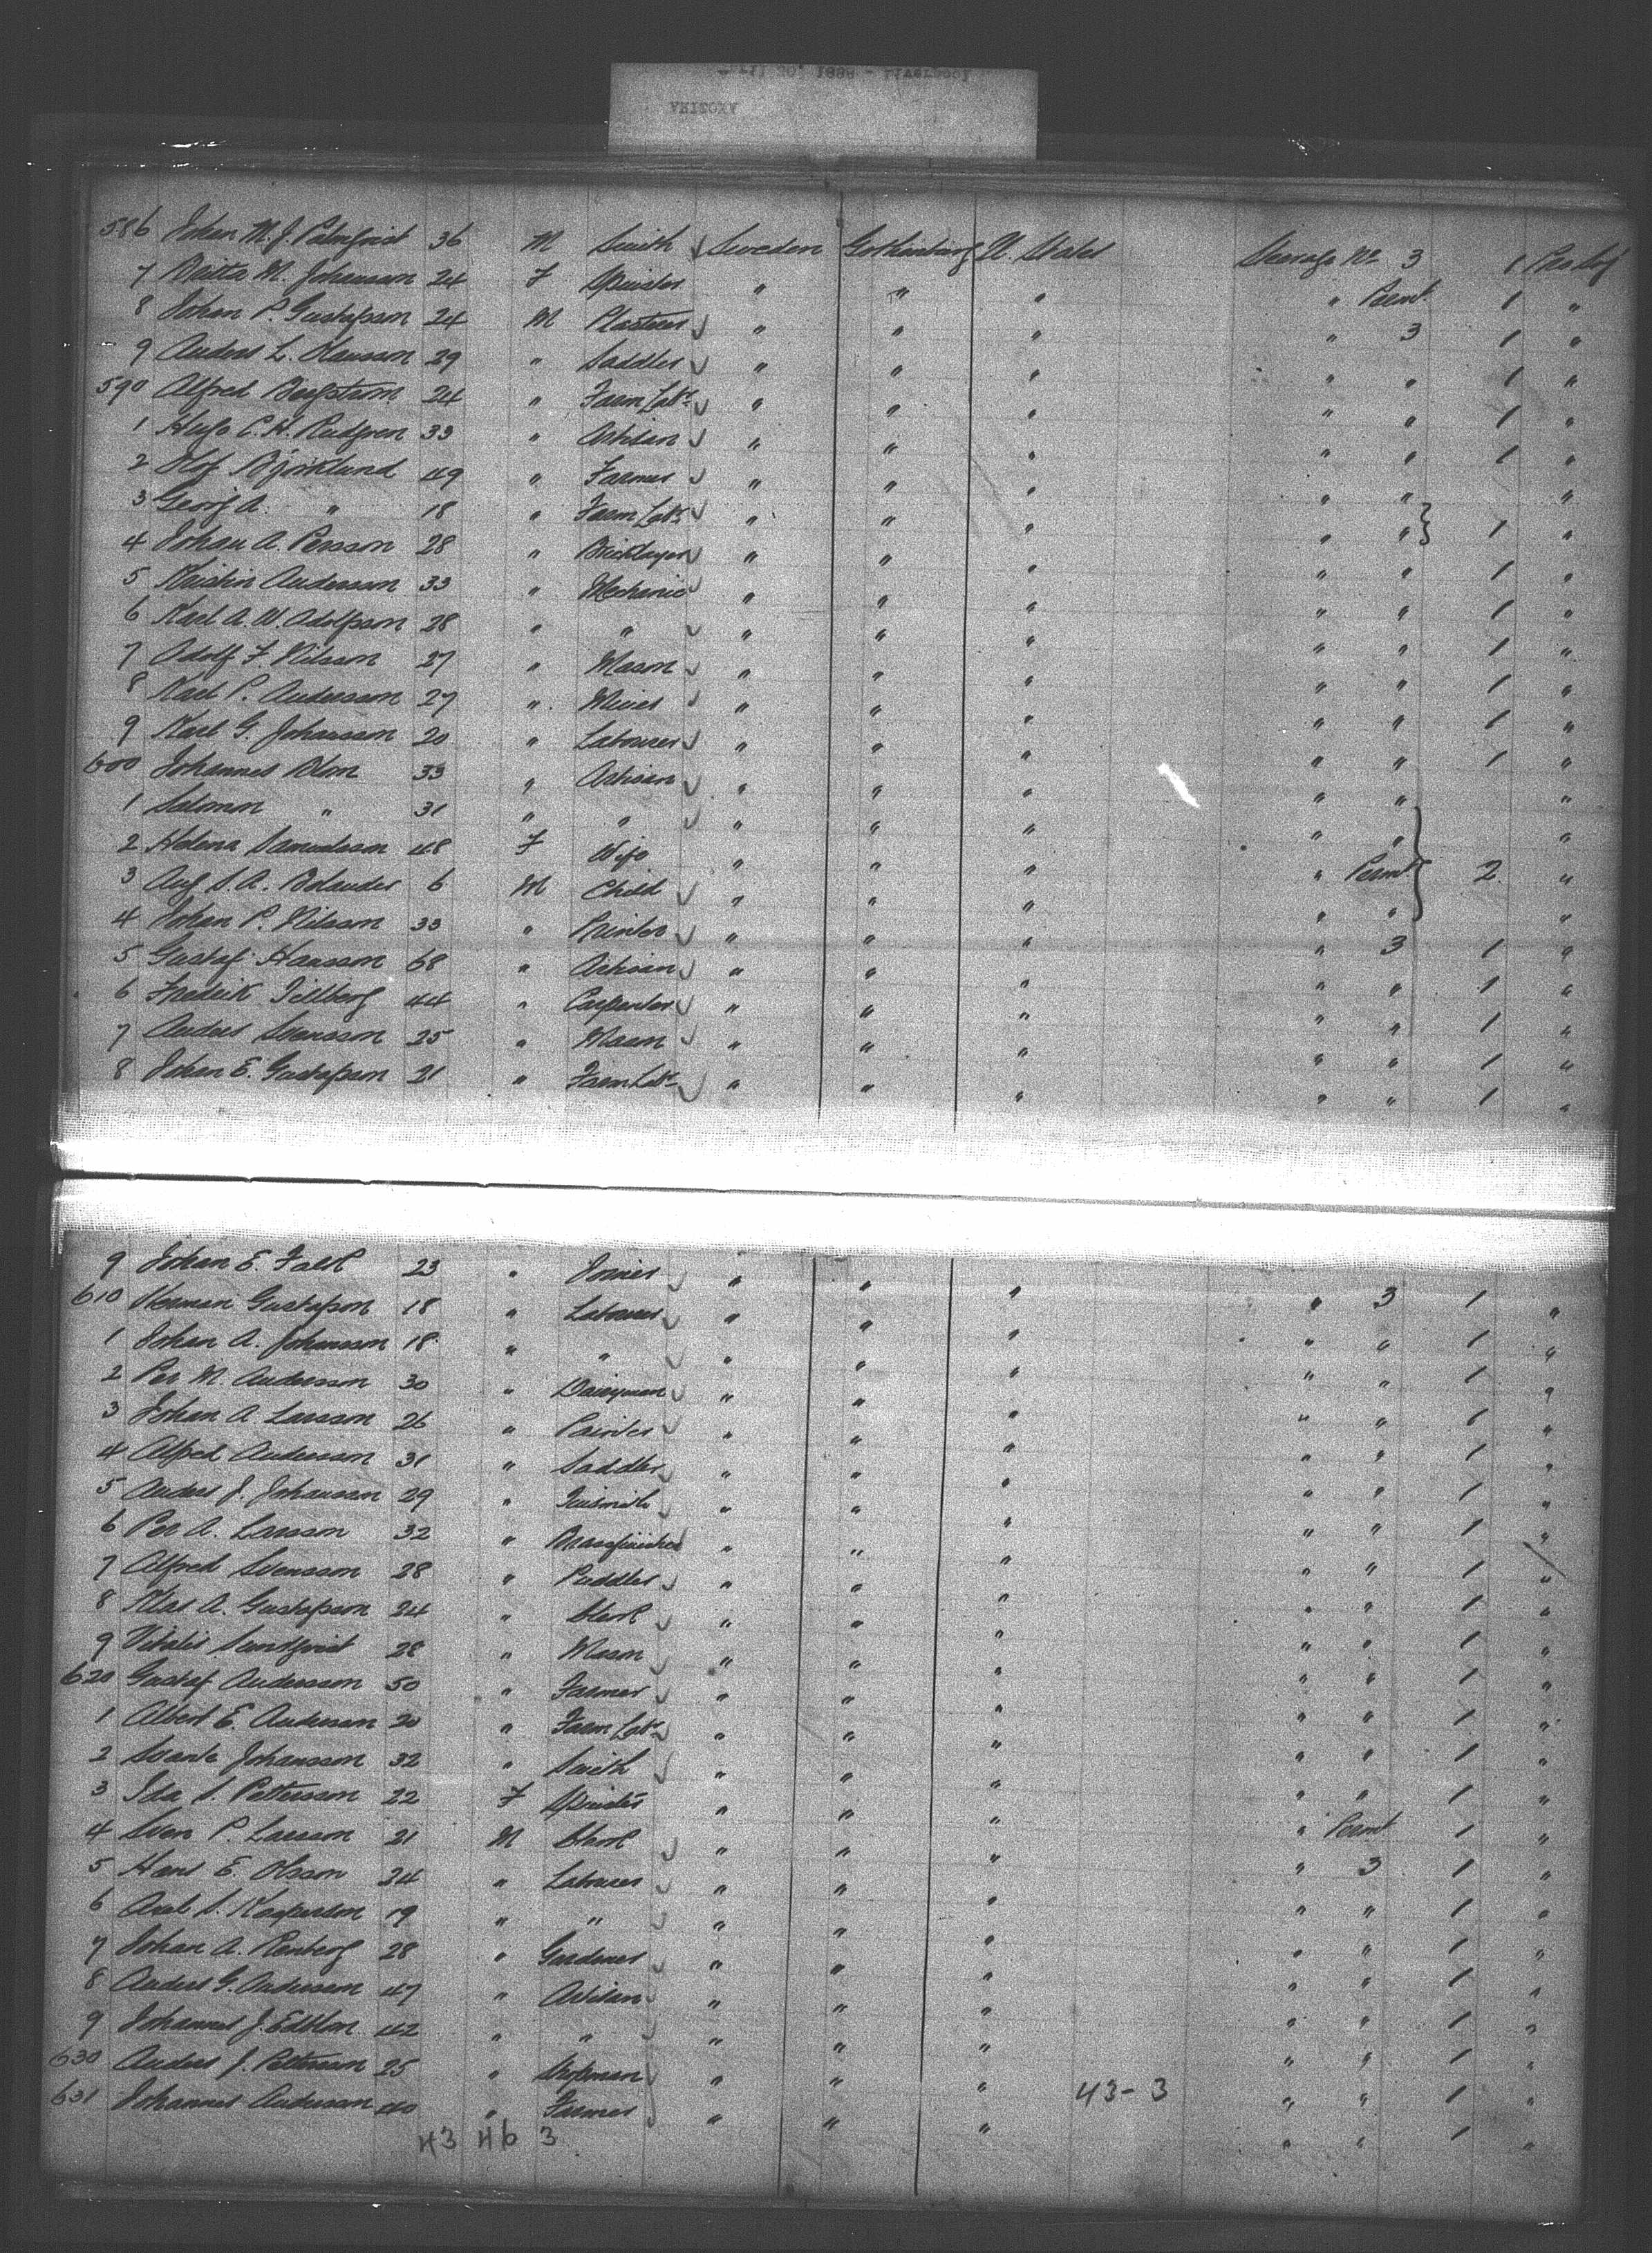 ARIZONA
586 Johan M. J. Palmqvist 36 M Smith Sweden Gothenburg U. States Steerage No 3 1 Pro Suf
7 Britta M. Johansson 24 F Spinster " " " " Permt 1 "
8 Johan P. Gustafsson 24 M Plasterer " " " " 3 1 "
9 Anders L. Hansson 29 " Saddler " " " " " 1 "
590 Alfred Bergstrom 24 " Farm Labr " " " " " 1 "
1 Hugo C. H. Rudgren 33 " Artisan " " " " " 1 "
2 Olof Bjorklund 49 " Farmer " " " " " "
3 Georg A. " 18 " Farm Labr " " " " " 1 "
4 Johan A. Persson 28 " Bricklayer " " " " " 1 "
5 Andersson 33 " Mechanic " " " " " 1 "
6 Karl A. W. Adolfsson 28 " " " " " " " 1 "
7 Adolf F. Nilsson 27 " Mason " " " " " 1 "
8 Karl P. Andersson 27 " Miner " " " " " 1 "
9 Karl G. Johansson 20 " Labourer " " " " " 1 "
600 Johannes Blom 33 " Artisan " " " " " "
1 Salomon " 31 " " " " " " " "
2 Helena Samuelsson 48 F Wife " " " " Permt 2 "
3 Aug S. A. Bolander 6 M Child " " " " " "
4 Johan P. Nilsson 33 " Printer " " " " 3 1 "
5 Gustaf Hansson 68 " Artisan " " " " " 1 "
6 Fredrik Tillberg 44 " Carpenter " " " " " 1 "
7 Anders Svensson 25 " Mason " " " " " 1 "
8 Johan E. Gustafsson 21 " Farm Labr " " " " " 1 "
9 Johan E. Falk 23 " Joiner " " " " 3 1 "
610 Herman Gustafson 18 " Labourer " " " " " 1 "
1 Johan A. Johansson 18 " " " " " " " 1 "
2 Per M. Andersson 30 " Dairyman " " " " " 1 "
3 Johan A. Larsson 26 " Painter " " " " " 1 "
4 Alfred Andersson 31 " Saddler " " " " " 1 "
5 Anders J. Johansson 29 " Tinsmith " " " " " 1 "
6 Per A. Larsson 32 " Brassfinisher " " " " " 1 "
7 Alfred Svensson 28 " Puddler " " " " " 1 "
8 Klas A. Gustafsson 24 " Clerk " " " " " 1 "
9 Vitalis Sundqvist 28 " Mason " " " " " 1 "
620 Gustaf Andersson 50 " Farmer " " " " " 1 "
1 Albert E. Andersson 20 " Farm Labr " " " " " 1 "
2 Svante Johansson 32 " Smith " " " " " 1 "
3 Ida S. Pettersson 22 F Spinster " " " " Permt 1 "
4 Sven P. Larsson 21 M Clerk " " " " 3 1 "
5 Hans E. Olsson 24 " Labourer " " " " " 1 "
6 Axel S. Kasperson 19 " " " " " " " 1 "
7 Johan A. Renberg 28 " Gardener " " " " " 1 "
8 Anders G. Andersson 47 " Artisan " " " " " 1 "
9 Johannes J. Edblom 42 " " " " " " " 1 "
630 Anders J. Pettersson 25 " Shopman " " " 43-3 " " 1 "
631 Johannes Andersson 40 " Farmer " " " " " 1 "
43 46 3